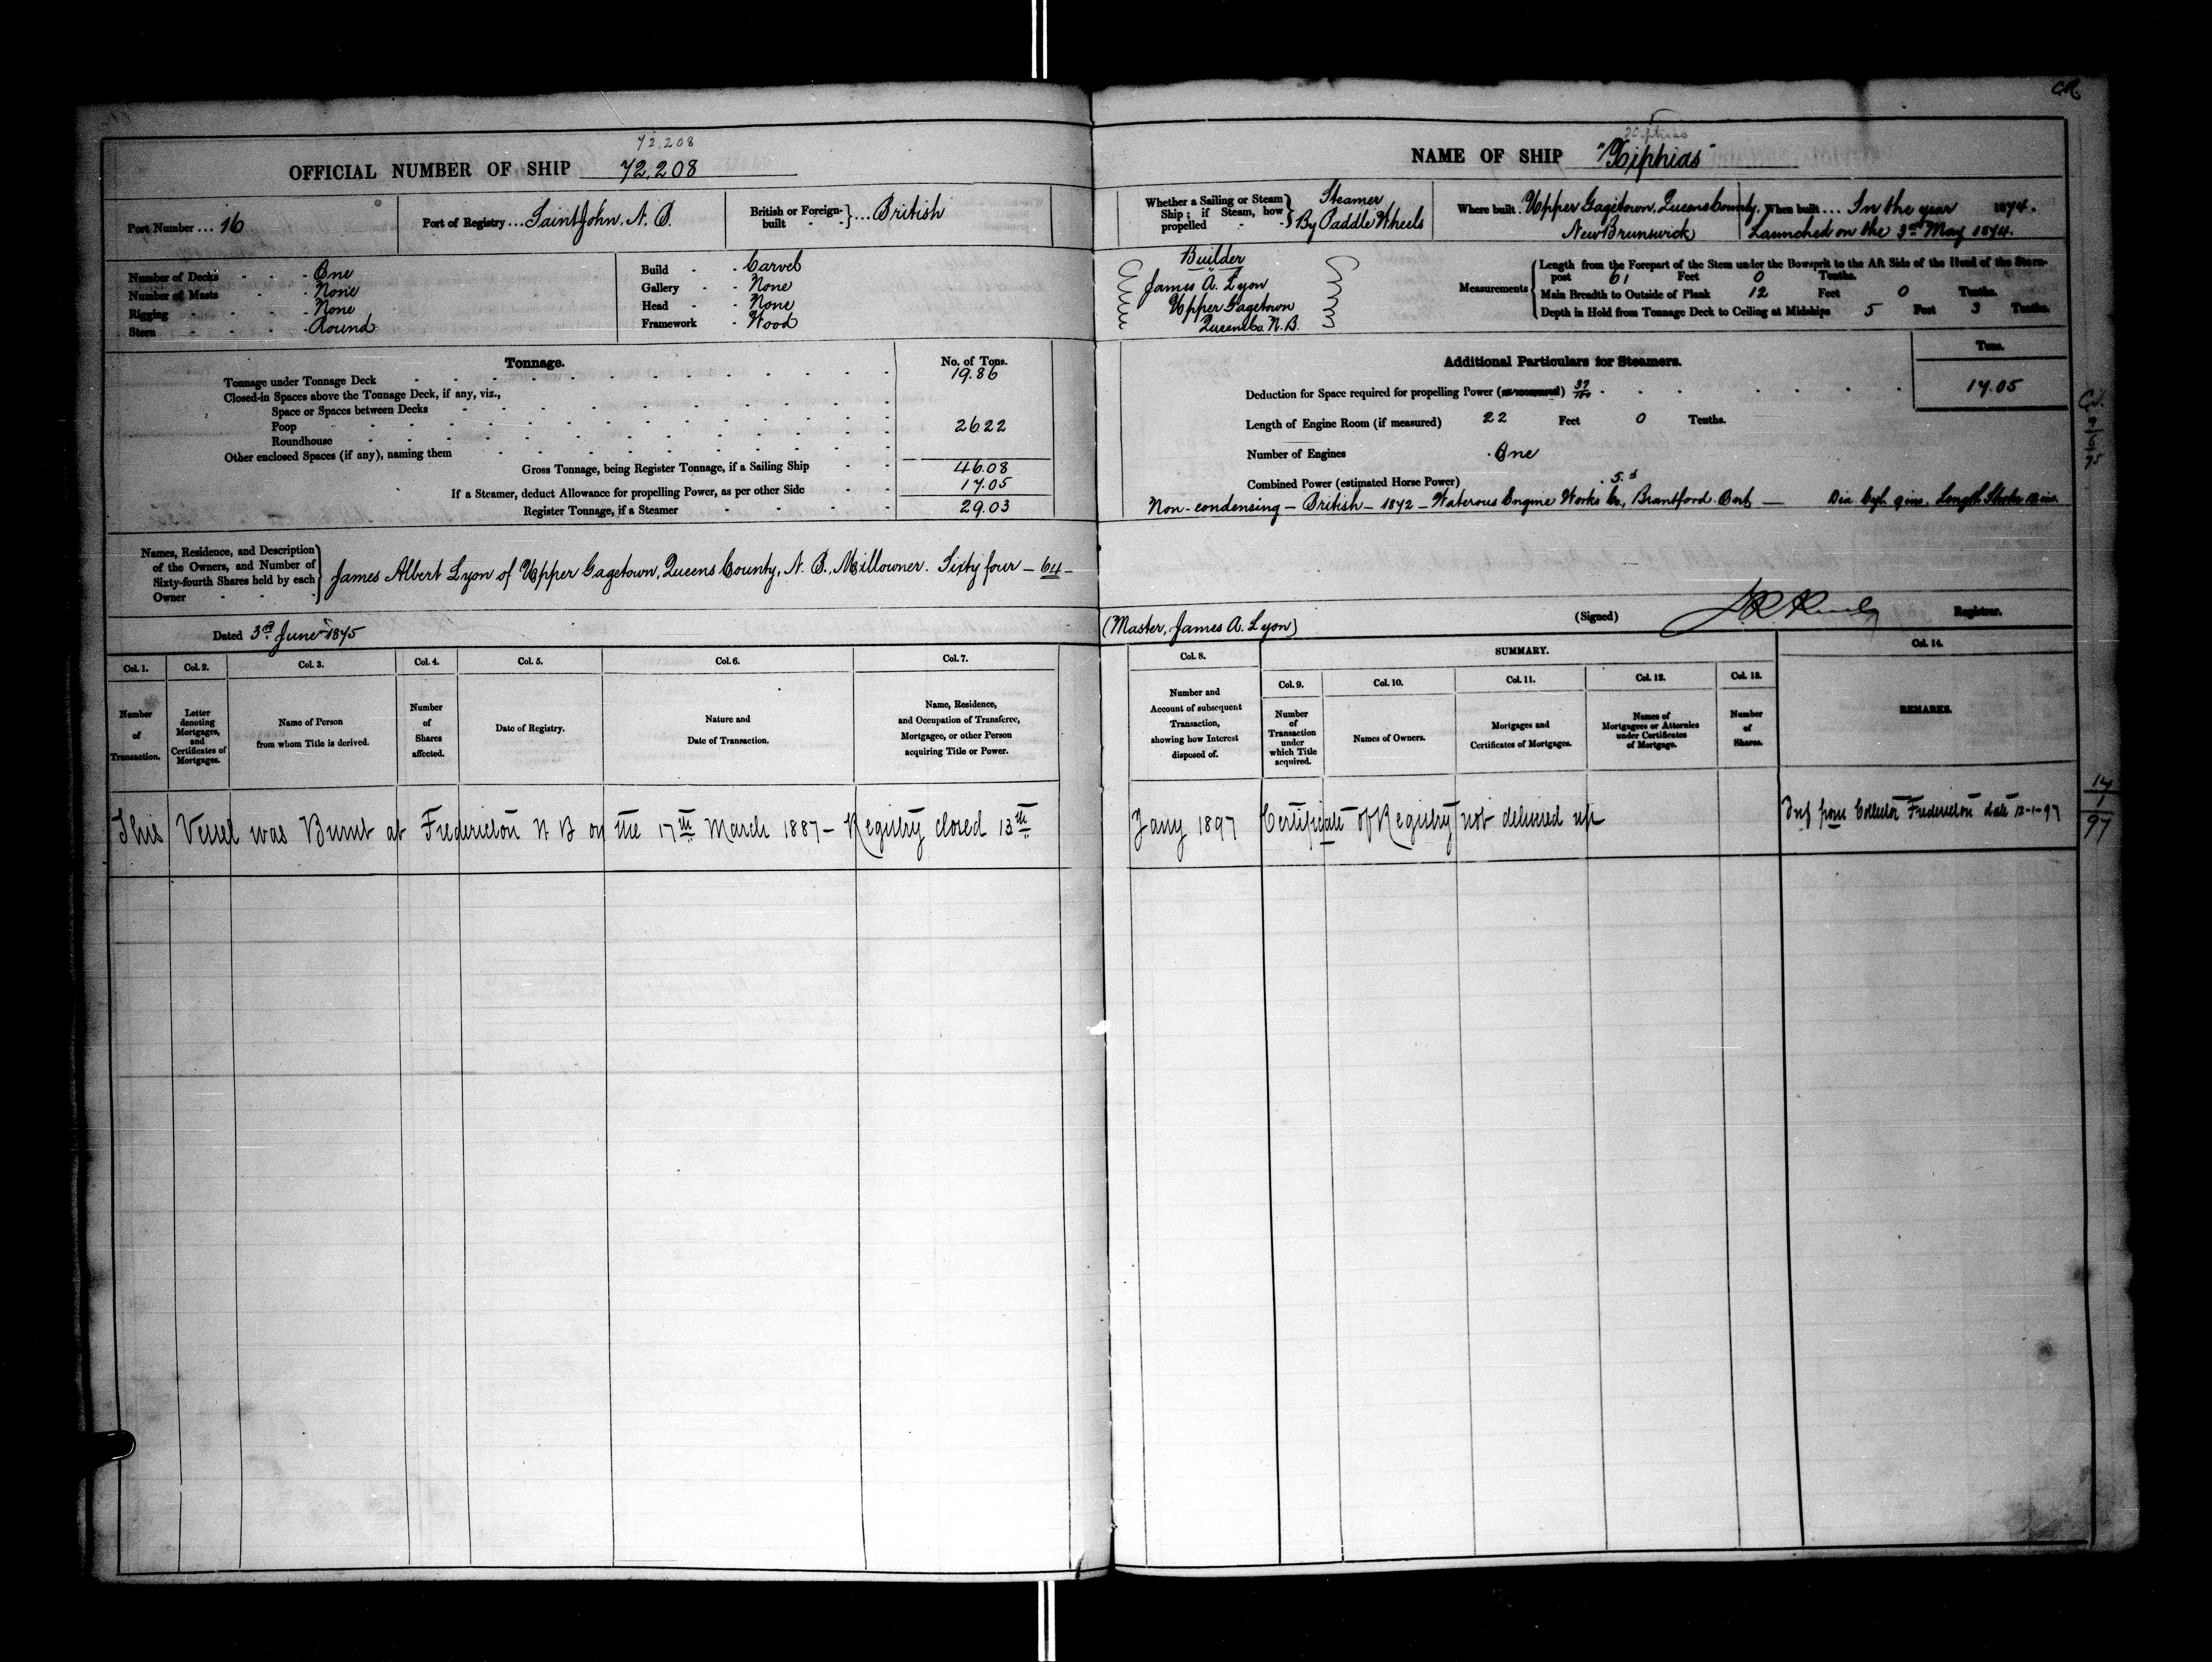 72,208
OFFICIAL NUMBER OF SHIP 72,208
Port Number ... 16
Port of Registry ... Saint John, N. B.
British or Foreign-built - - } ... British
Number of Decks - - - One
Number of Masts - - - None
Rigging - - - - None
Stern - - - - Round
Build - - Carvel
Gallery - - None
Head - - None
Framework - Wood
Tonnage.
No. of Tons.
Tonnage under Tonnage Deck 19.86
Closed-in Spaces above the Tonnage Deck, if any, viz.,
Space or Spaces between Decks
Poop 26.22
Roundhouse
Other enclosed Spaces (if any), naming them
Gross Tonnage, being Register Tonnage, if a Sailing Ship 46.08
If a Steamer, deduct Allowance for propelling Power, as per other Side 17.05
Register Tonnage, if a Steamer 29.03
Names, Residence, and Description
of the Owners, and Number of
Sixty-fourth Shares held by each
Owner
James Albert Lyon of Upper Gagetown, Queens County, N. B., Millowner. Sixty four - 64 -
Dated 3rd June 1875
Col. 1. Col. 2. Col. 3. Col. 4. Col. 5. Col. 6. Col. 7.
Number of Transaction.
Letter denoting Mortgages, and Certificates of Mortgages.
Name of Person from whom Title is derived.
Number of Shares affected.
Date of Registry.
Nature and Date of Transaction.
Name, Residence, and Occupation of Transferee, Mortgagee, or other Person acquiring Title or Power.
This Vessel was Burnt at Fredericton N B on the 17th March 1887 - Registry closed 13th
CR
NAME OF SHIP "Xiphias"
Whether a Sailing or Steam Ship; if Steam, how propelled - - } Steamer
By Paddle Wheels
Where built. Upper Gagetown, Queens County,
New Brunswick
When built ... In the year 1874.
Launched on the 3rd May 1874.
Builder
James A. Lyon
Upper Gagetown
Queens Co. N. B.
Measurements
Length from the Forepart of the Stem under the Bowsprit to the Aft Side of the Head of the Stern-
post 61 Feet 0 Tenths.
Main Breadth to Outside of Plank 12 Feet 0 Tenths.
Depth in Hold from Tonnage Deck to Ceiling at Midships 5 Feet 3 Tenths.
Additional Particulars for Steamers.
Tons.
Deduction for Space required for propelling Power (as measured) 37/100 17.05
Length of Engine Room (if measured) 22 Feet 0 Tenths.
Number of Engines One
Combined Power (estimated Horse Power) 5.
Non-condensing - British - 1872 - Waterous Engine Works Co., Brantford Ont - Dia. Cyl. 9 ins. Length Stroke 12 ins.
(Master, James A. Lyon)
(Signed) Registrar.
Col. 8.
SUMMARY.
Col. 14.
Col. 9. Col. 10. Col. 11. Col. 12. Col. 13.
Number and Account of subsequent Transaction, showing how Interest disposed of.
Number of Transaction under which Title acquired.
Names of Owners.
Mortgages and Certificates of Mortgages.
Names of Mortgagees or Attornies under Certificates of Mortgage.
Number of Shares.
REMARKS.
Jany 1897 Certificate of Registry not delivered up
Inf from Collector Fredericton date 12-1-97
14
1
97